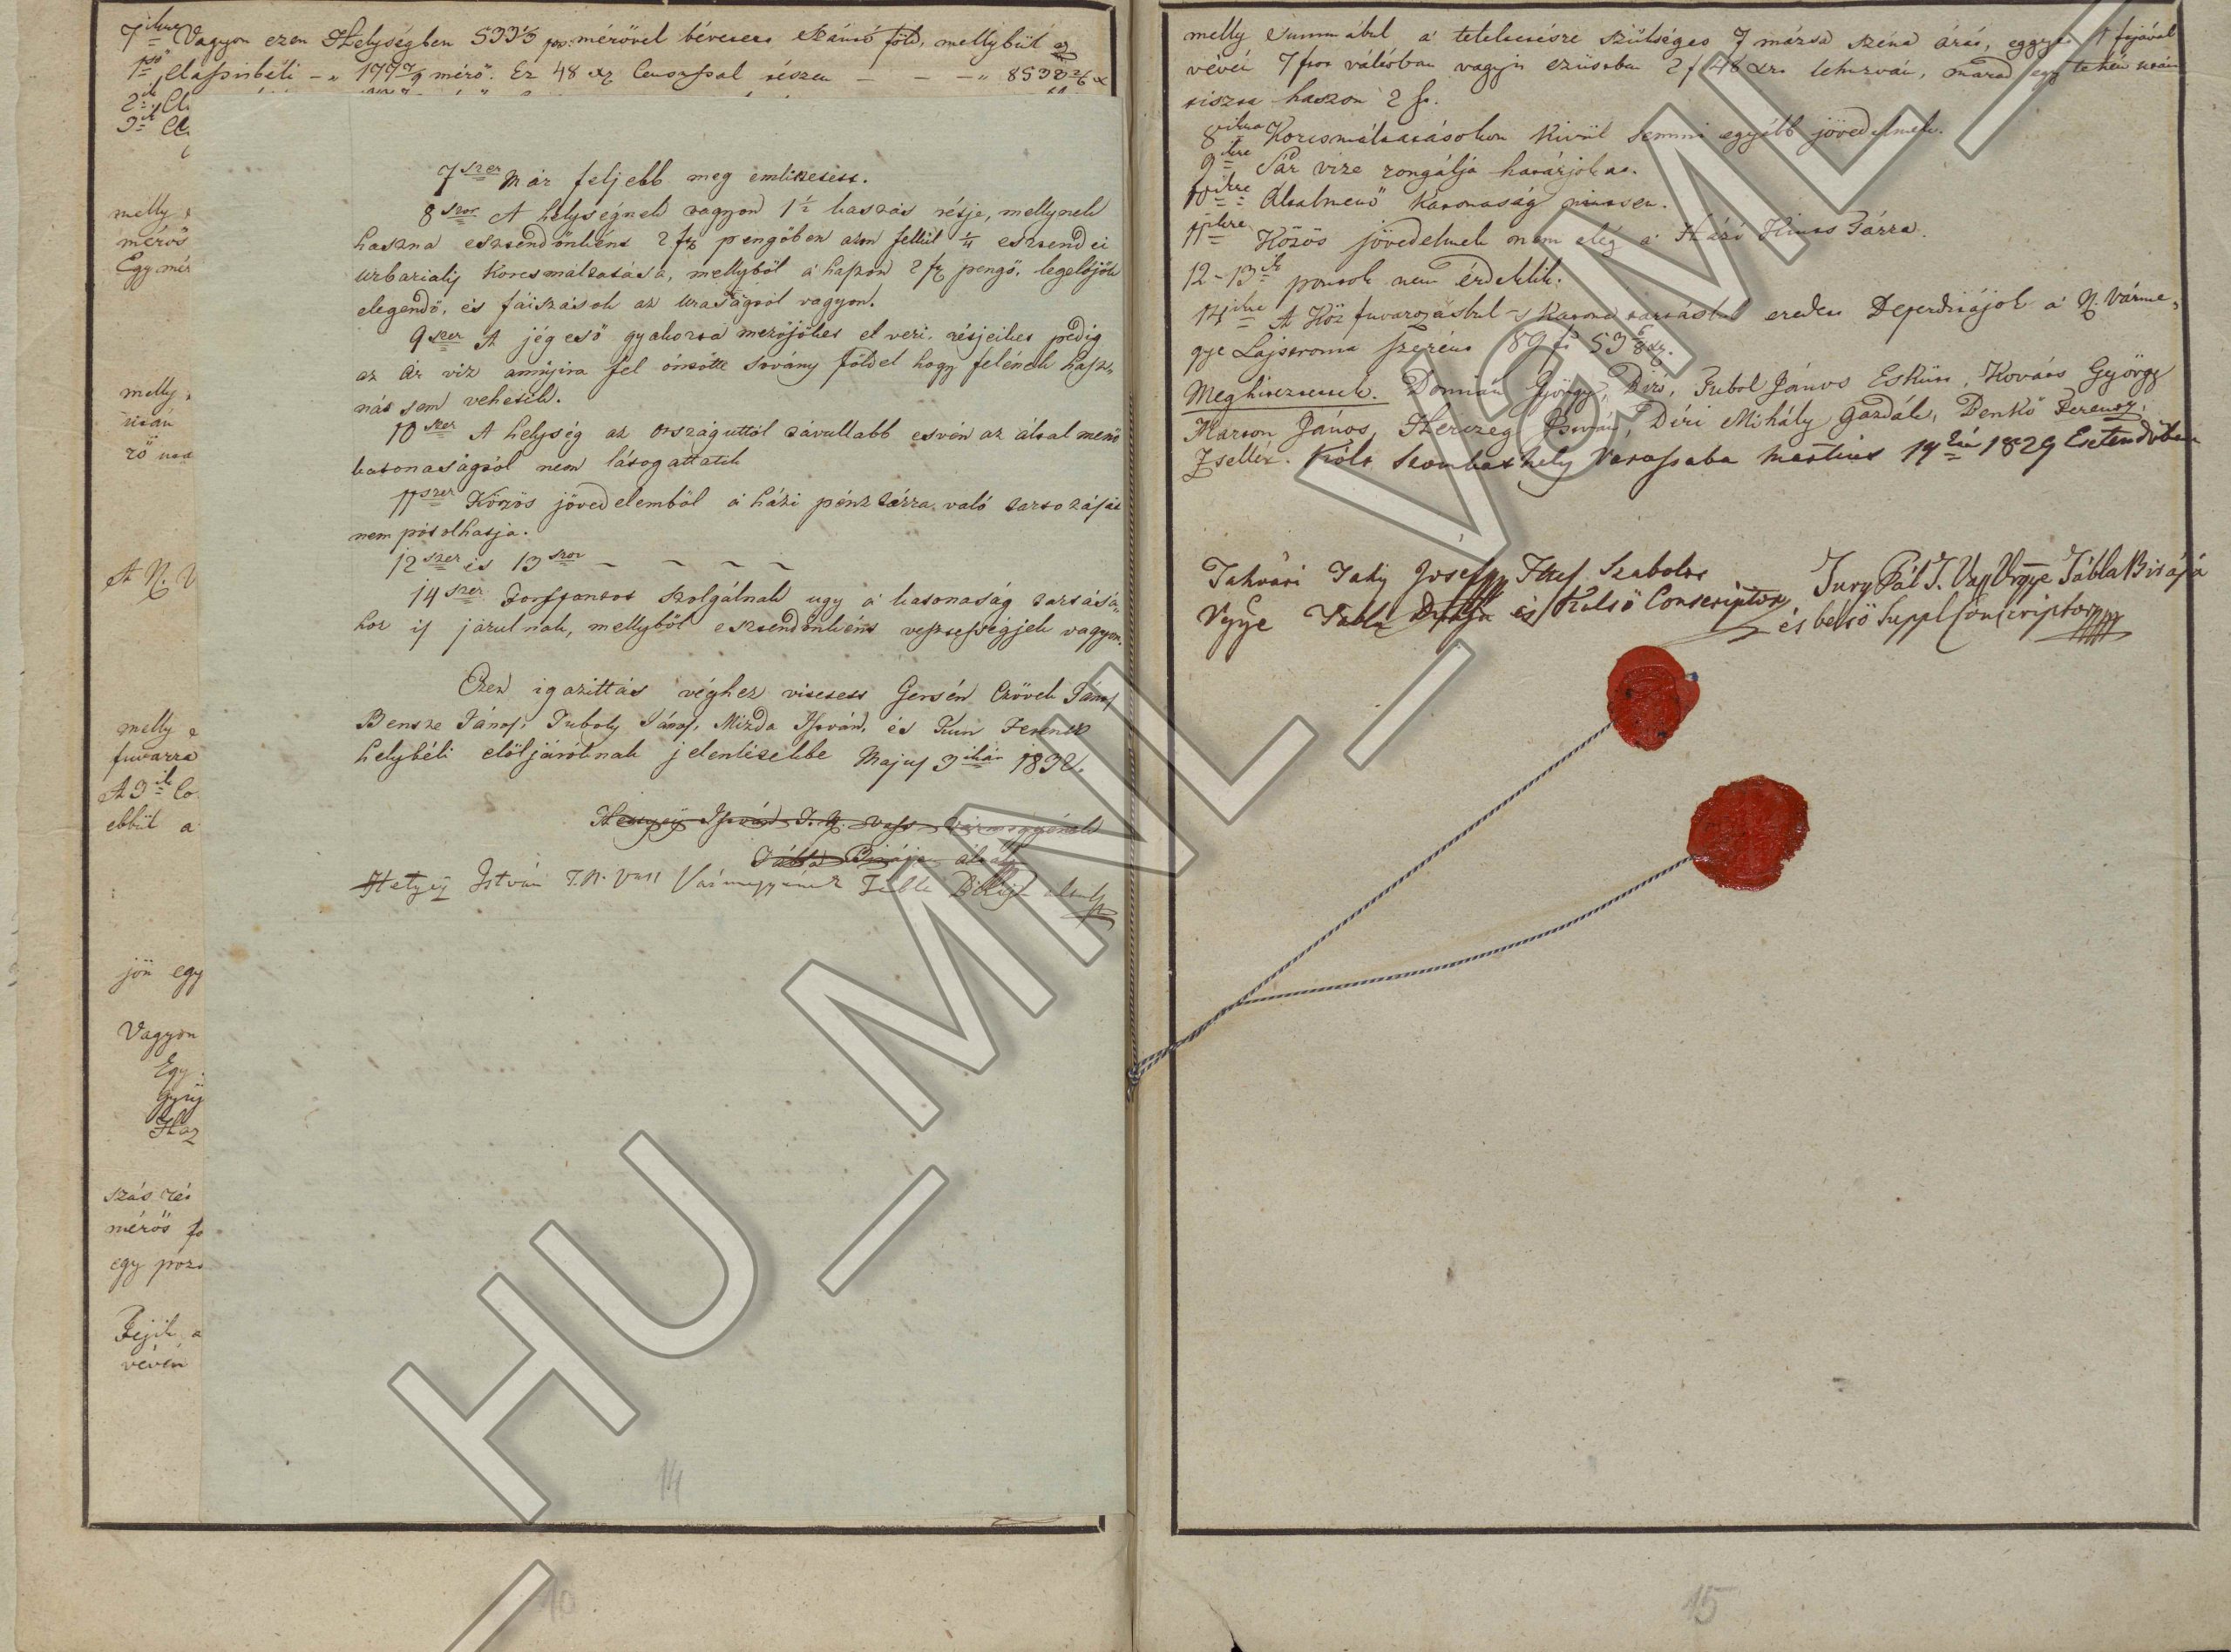 7ikre Vagyon ezen Helységben 533 1/3 po: mérővel bévetett szántó föld, mellybül
1ső Classisbéli 177 7/9 mérő. Ez 48 xr Censussal tészen 8538
2ik Cl
3ik Cl
melly
mérős
Egy mér
melly
után
rő
A N. V
melly
fuvarra
A 3ik Co
ebbül a
jön egy
Vagyon
Egy
gyüj
Haz
szás rét
mérős fo
egy pozs
Fejik a
vévén
7szer Már feljebb meg emlittetett.
8szor A helységnek vagyon 1 1/2 kaszás rétje, mellynek
haszna esztendőnként 2 fr pengőben azon fellül 1/4 esztendei
urbarialis korcsmáltatása, mellyből a haszon 2 fr pengő, legelőjök
elegendő, és fáizások az uraságtól vagyon.
9szer A jég eső gyakorta mezőjöket el veri, rétjeiket pedig
az ár viz annyira fel öntötte sovány földel hogy felének hasz,
nát sem vehetik.
10szer A helység az országuttól távullabb esvén az által menő
katonaságtól nem látogattatik
11szer Közös jövedelemből a házi pénztárra való tartozását
nem pótolhatja.
12szer és 13szor – – – –
14szer Forspontot szolgálnak ugy a katonaság tartásá„
hoz is járulnak, mellyből esztendőnként vesztességjek vagyon.
Ezen igazittás véghez vitetett Gersén Czövek János
Bentze János, Tuboly János, Mizda István, és Kun Ferencz
helybéli előljáróknak jelenlétekbe Majus 3ikán 1832.
Hettyey István T. N. Vass Vármegyének
Tábla Birája által
Hetyey István T. N. Vass Vármegyének Tábla Birája által
14
10
melly summábul a teleltetésre szükséges 7 mázsa széna árát, eggyet 1 fojával
vévén 7 frot váltóban vagyis ezüstben 2 f 48 xr lehuzván, marad egy tehén után
tiszta haszon 2 fr.
8ikra Korcsmáltatásokon kivül semmi egyébb jövedelmek.
9ikre Sár vize rongálja határjokat.
10ikre Általmenő Katonaság nintsen.
11ikre Közös jövedelmek nem elég a Házi Kints Tárra.
12–13ik pontok nem érdeklik.
14ikre A Köz fuvarozásbul s Katona tartásbul eredett Deperditájok a N. Várme„
gye Lajstroma szerént 89 fr 53 6/8 xr.
Meghitezettek. Domián György, Biró, Tubol János Eskütt, Kovács György
Marton János, Herczeg István, Déri Mihály Gazdák, Denkó Ferencz
Zsellér. Költ Szombathely Várassába Martius 14kén 1829 Esztendőben
Tahvári Tahy Josef Ttes Szabolcs
Vgye Tábla Birája és Külső Conscriptor
Jury Pál T. Vas Vrgye Tábla Birája
és belső Suppl Conscriptor
15
HU_MNL_VML_